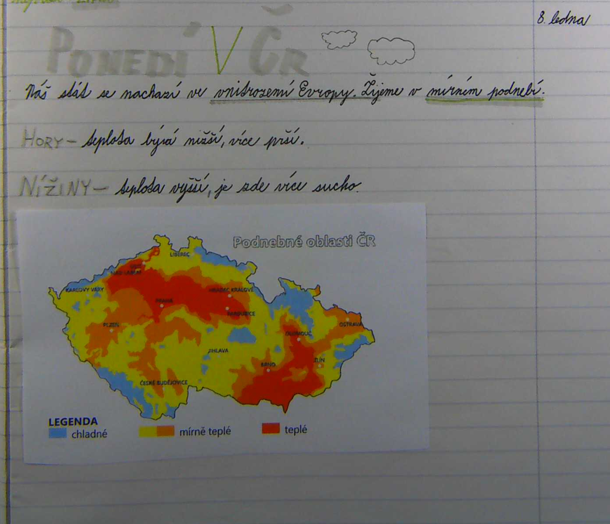 8. ledna
PONEDÍ V ČR
Náš stát se nachází ve vnitrozemí Evropy. Žijme v mírním podnebí.
HORY – teplota bývá nižší, více prší.
NÍŽINY – teplota vyšší, je zde více sucho.
Podnebné oblasti ČR
LIBEREC
KARLOVY VARY
HRADEC KRÁLOVÉ
PRAHA
PARDUBICE
PLZEŇ
OSTRAVA
OLOMOUC
JIHLAVA
ZLÍN
BRNO
ČESKÉ BUDĚJOVICE
LEGENDA
chladné mírně teplé teplé